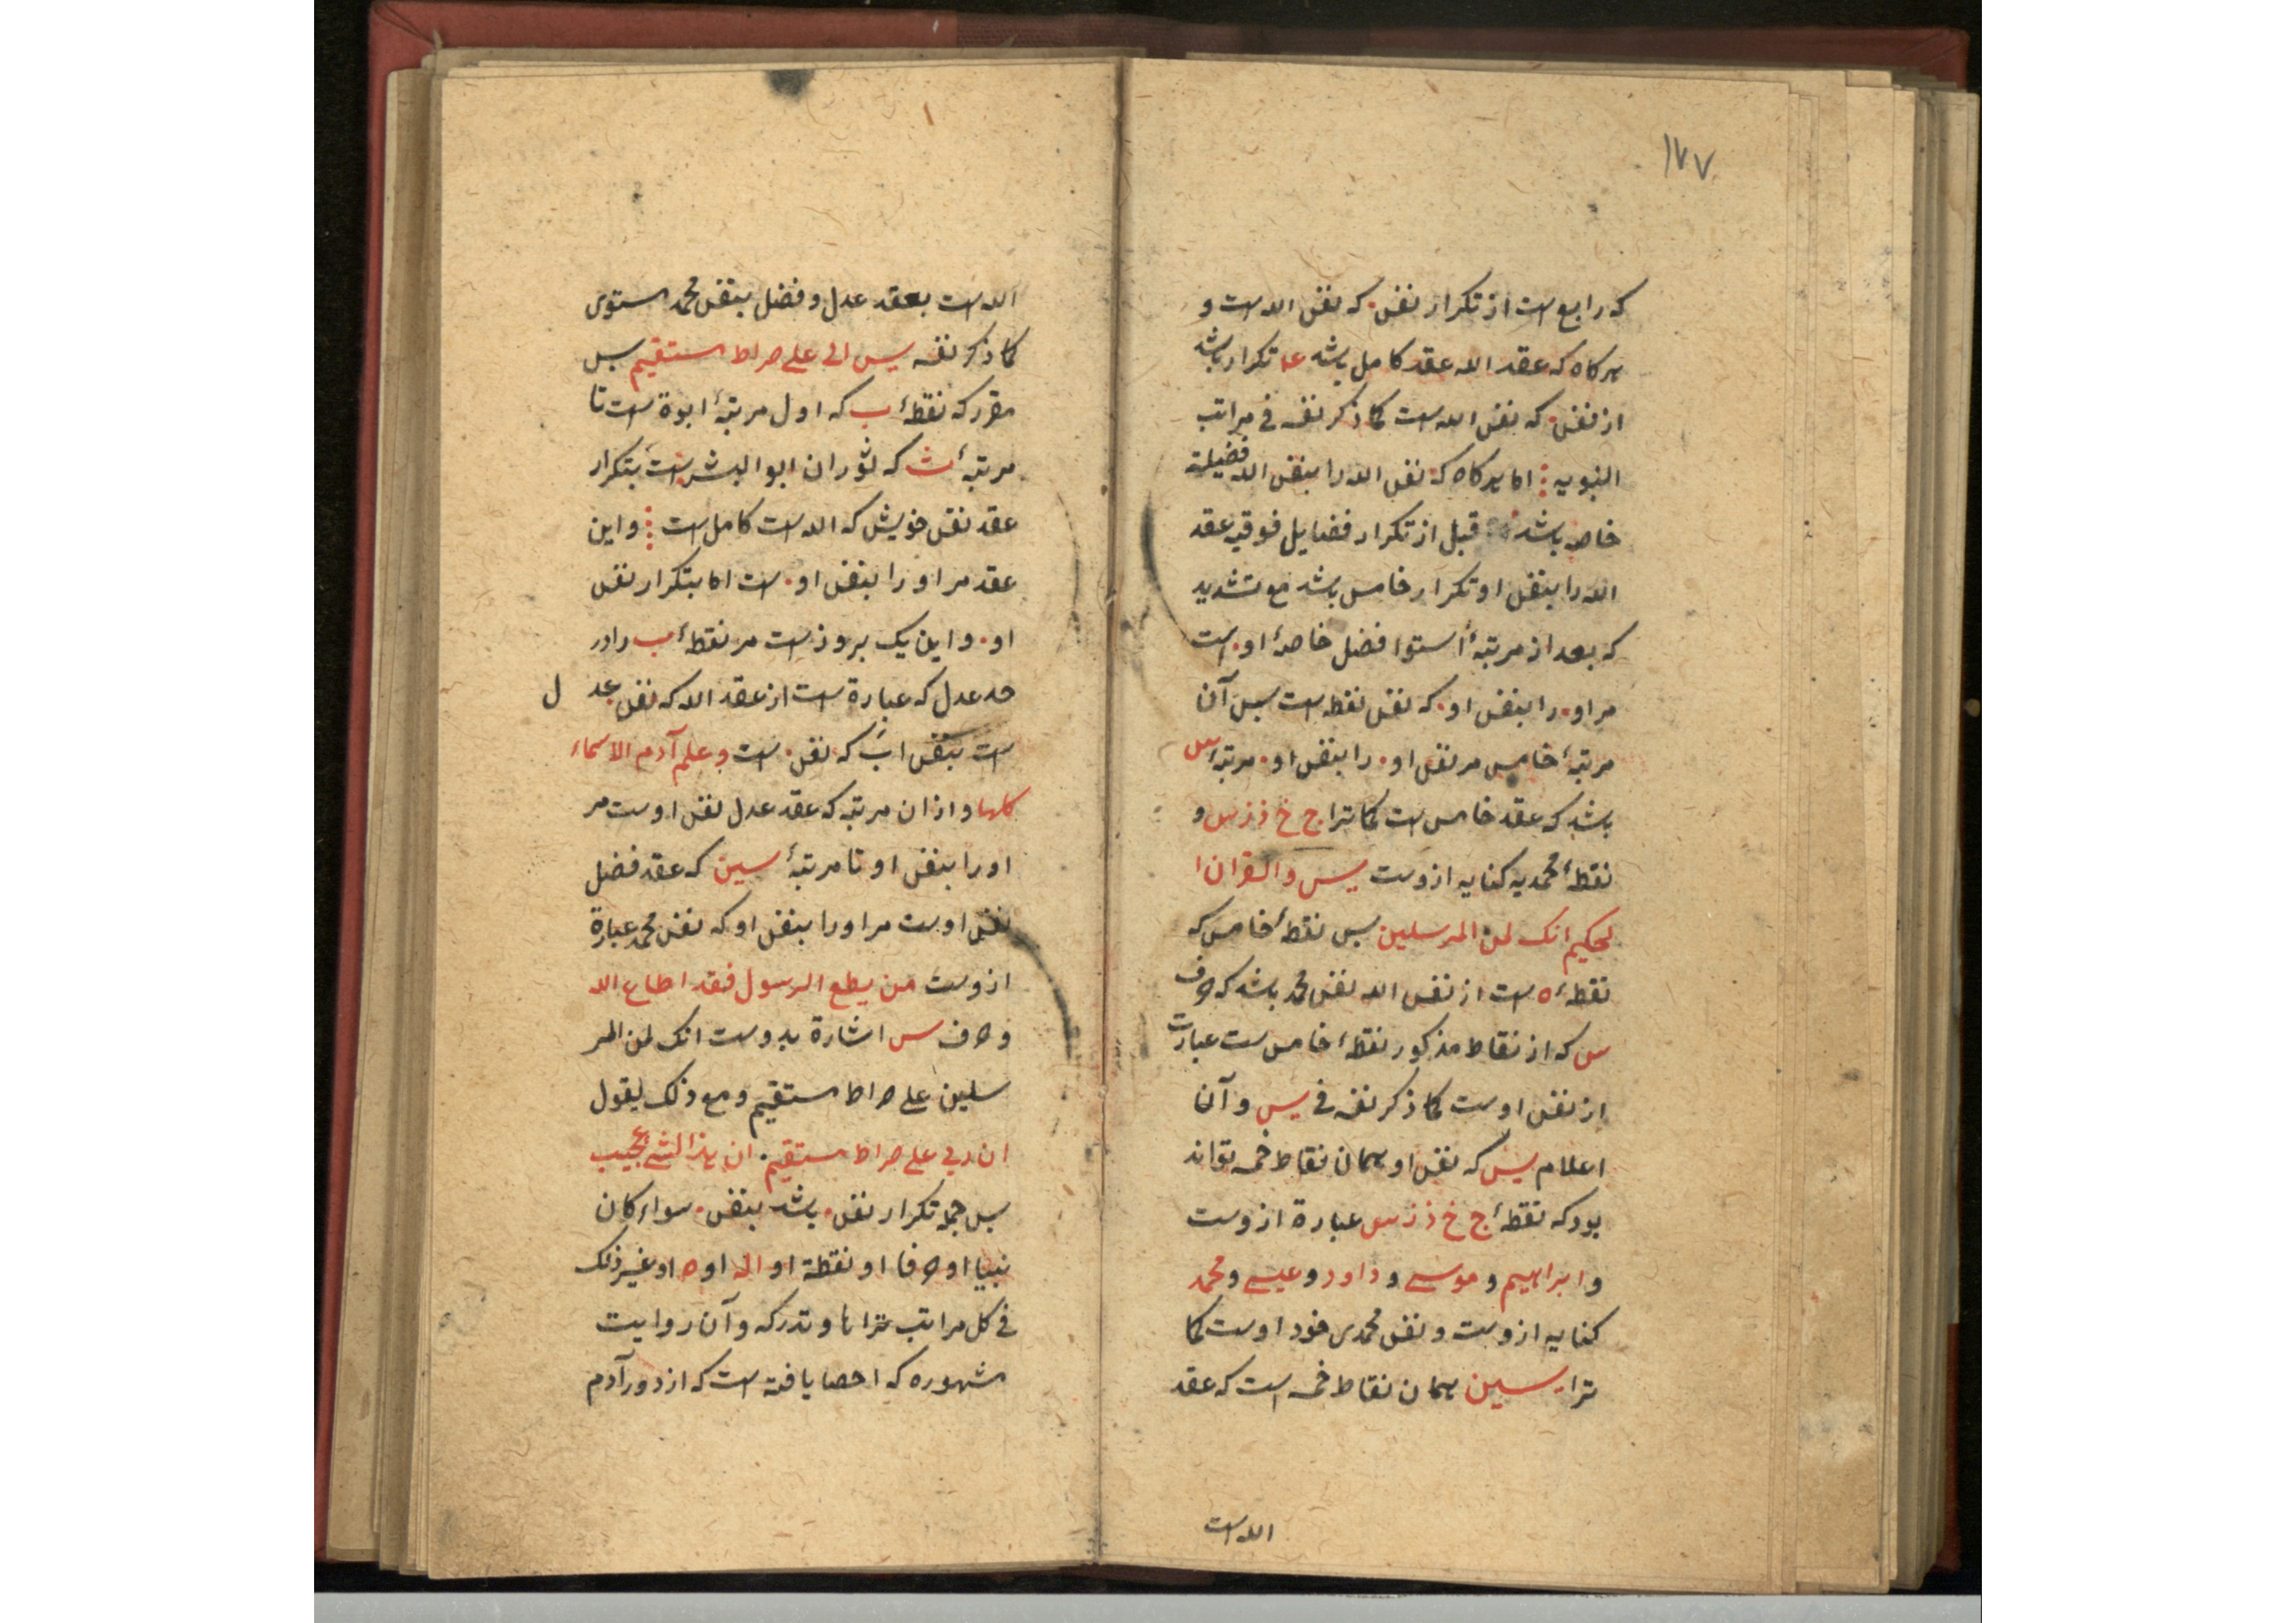 ۱۷۷
که رابع است از تکرار نفس . که نفس الله است و
هرکاه که عقد الله عقد کامل باشد عا تکرار باشد
از نفس . که نفس الله است کما ذکر نفسه فی مراتب
النبویه اما هرکاه که نفس الله را بنفس الله فضیلة
خاص باشد قبل از تکرار فضایل فوقیه عقد
الله را بنفس او تکرار خامس باشد مع تشدید
که بعد از مرتبهٔ استوا فضل خاصهٔ او . است
مر او . را بنفس او . که نفس نقطه است پس آن
مرتبهٔ خامس مر نفس او . را بنفس او . مرتبهٔ س
باشد که عقد خامس است کما ترا ج خ ذ ز س و
نقطهٔ محمدیه کنایه ازوست یس والقران ا
لحکیم انک لمن المرسلین پس نقطهٔ خامس که
نقطهٔ ه است از نفس الله نفس محمد باشد که حرف
س که از نقاط مذکور نقطهٔ خامس است عبارت
از نفس اوست کما ذکر نفسه فی یس و آن
اعلام یس که نفس او همان نقاط خمسه تواند
بود که نقطهٔ ج خ ذ ز س عبارة ازوست
و ابراهیم و موسی و داود و عیسی و محمد
کنایه ازوست و نفس محمدی خود اوست کما
ترا سین همان نقاط خمسه است که عقد
الله است
الله است بعقد عدل و فضل بنفس محمد مستوی
کما ذکر نفسه یس الی علی صراط مستقیم پس
مقرر که نقطهٔ ب که اول مرتبهٔ ابوة است تا
مرتبهٔ ث که ثوران ابوالبشر است بتکرار
عقد نفس خویش که الله است کامل است و این
عقد مر او را بنفس او . است اما بتکرار نفس
او . و این یک بروز است مر نقطهٔ ب را در
حد عدل که عبارة است از عقد الله که نفس عد ل
است بنفس اب که نفس . است و علم آدم الاسماء
کلها و از ان مرتبه که عقد عدل نفس اوست مر
او را بنفس او تا مرتبهٔ سین که عقد فضل
نفس اوست مر او را بنفس او که نفس محمد عبارة
ازوست من یطع الرسول فقد اطاع الله
و حرف س اشارة بدوست انک لمن المر
سلین علی صراط مستقیم و مع ذلک یقول
ان ربی علی صراط مستقیم . ان هذا لشئ عجیب
پس جمله تکرار نفس . باشد بنفس . سواء کان
نبیا او حرفا او نقطة او اله او ه او غیر ذلک
فی کل مراتب تراها و تدرکه و آن روایت
مشهوره که احصا یافته است که از دور آدم